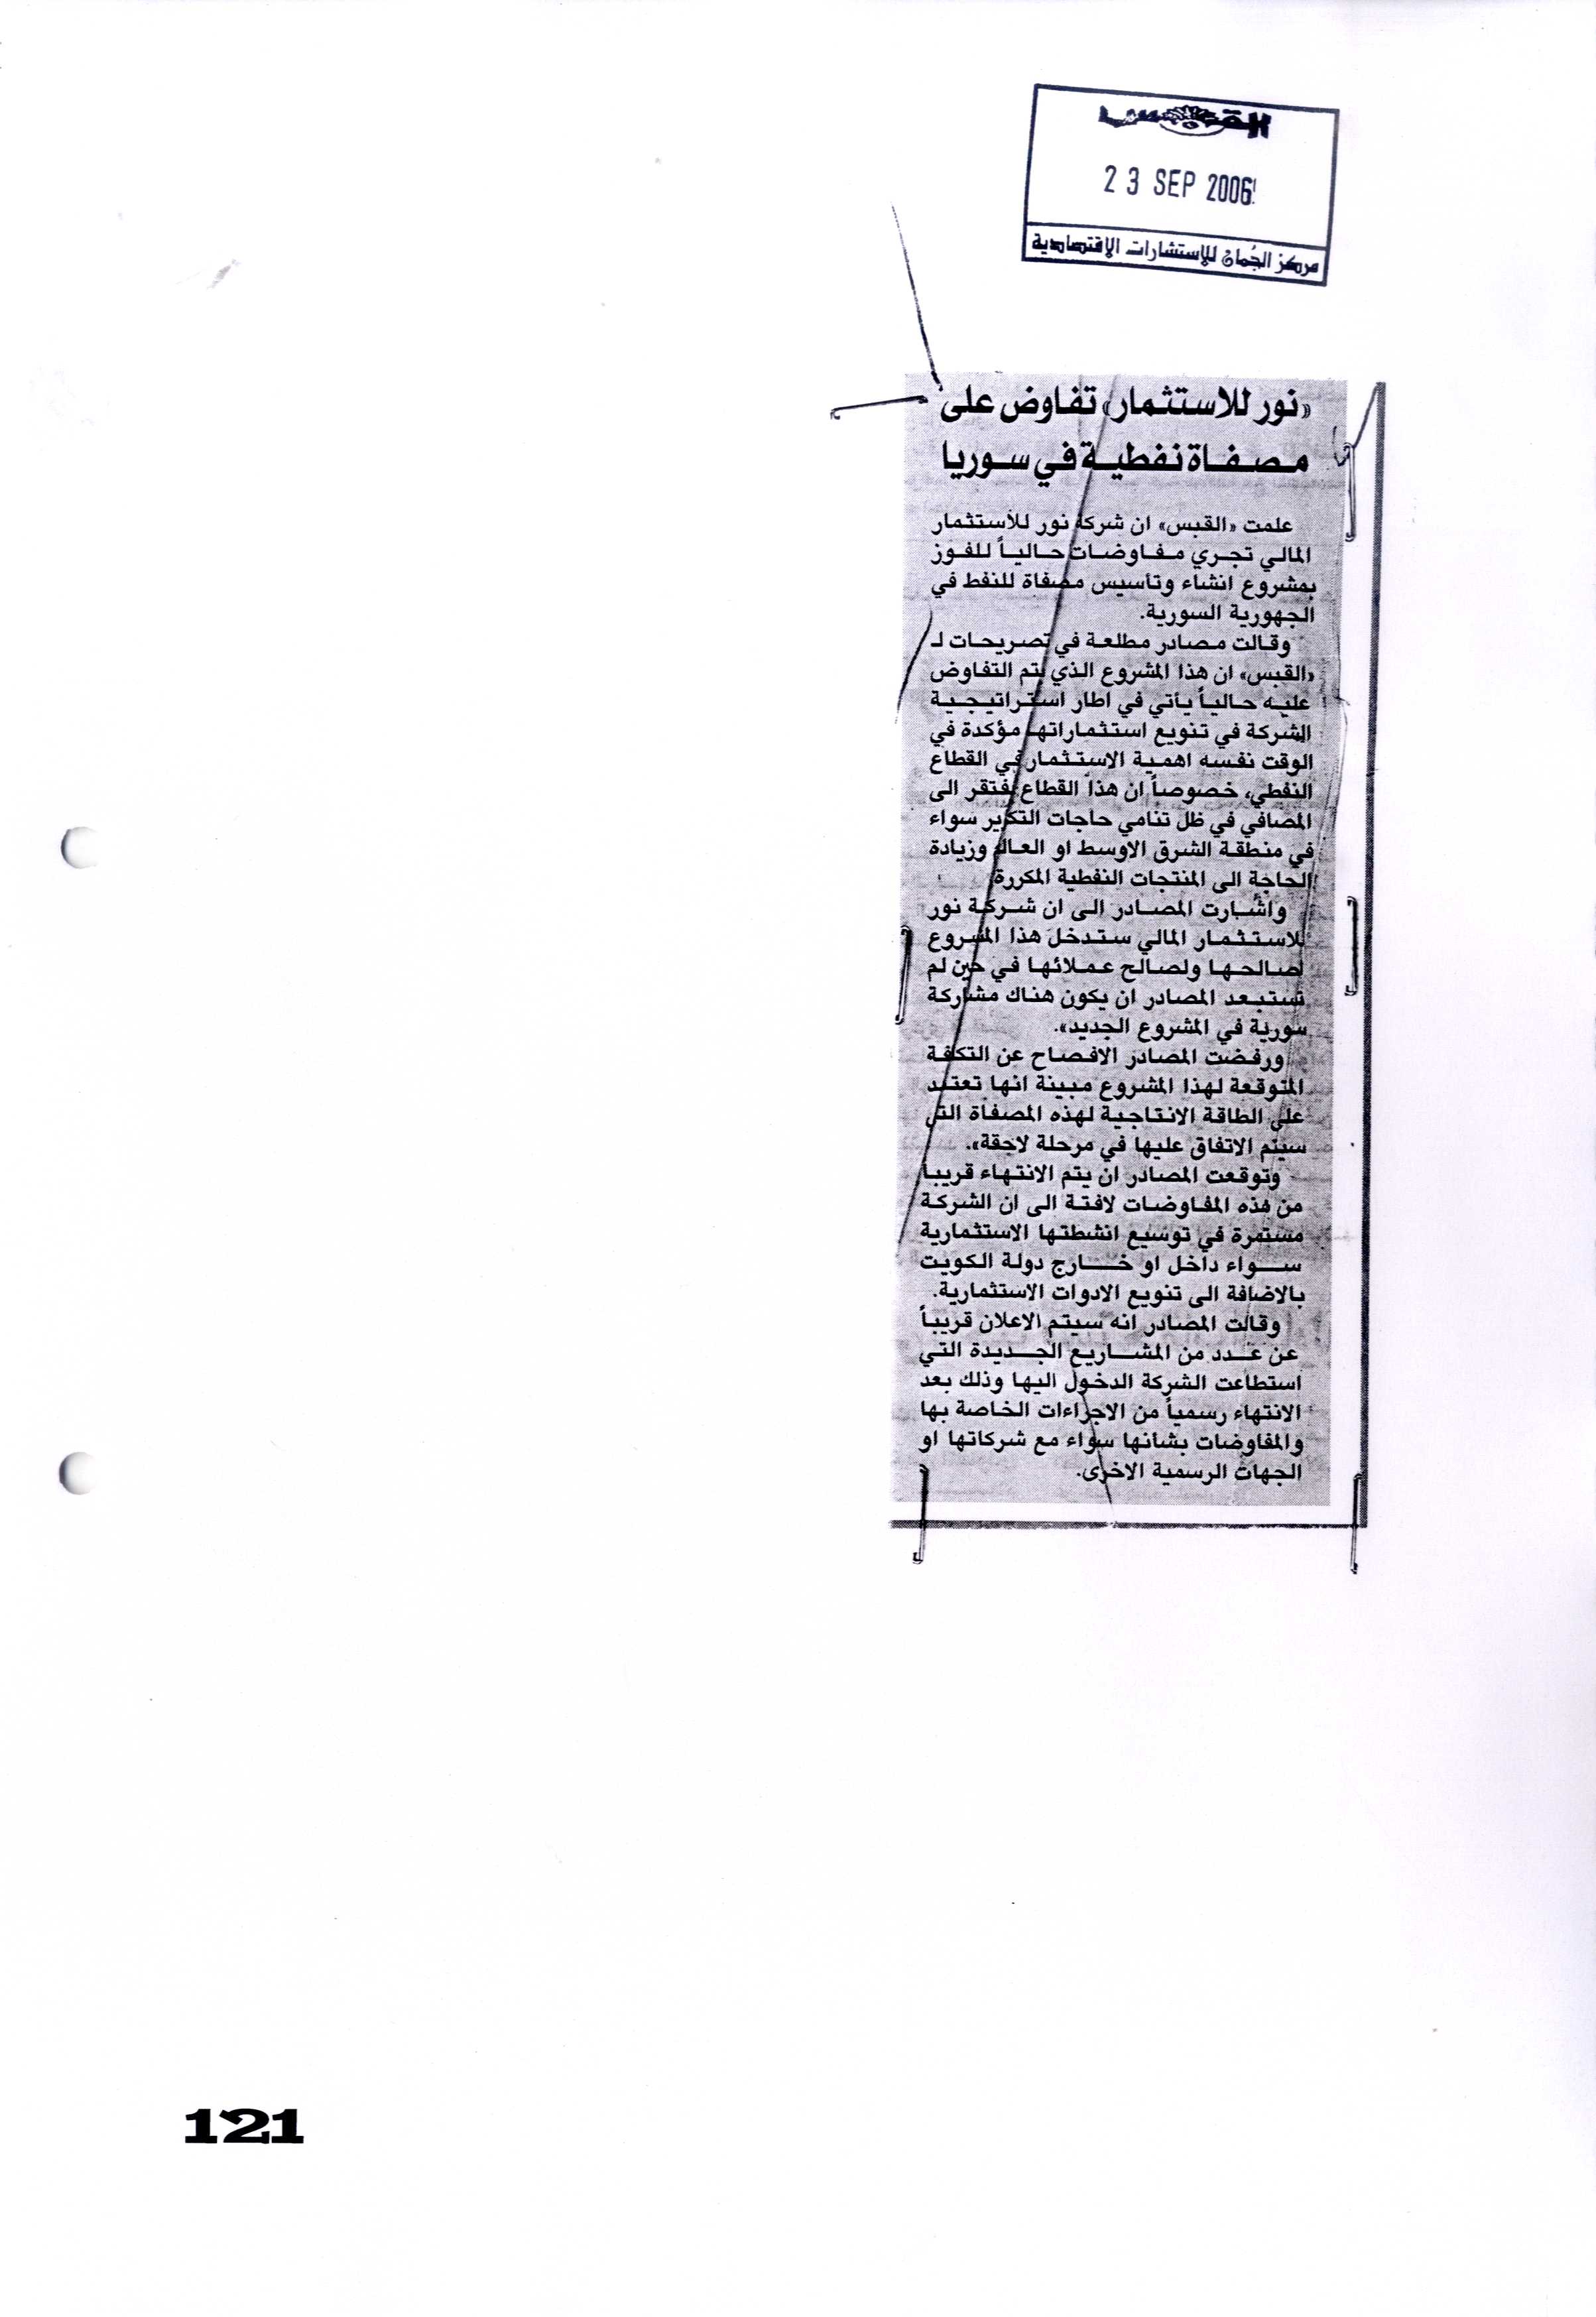 القبس
23 SEP 2006
مركز الجُمان للإستشارات الإقتصادية
«نور للاستثمار» تفاوض على
مصفاة نفطية في سوريا
علمت «القبس» ان شركة نور للأستثمار
المالي تجري مفاوضات حالياً للفوز
بمشروع انشاء وتأسيس مصفاة للنفط في
الجهورية السورية.
وقالت مصادر مطلعة في تصريحات لـ
«القبس» ان هذا المشروع الذي يتم التفاوض
عليه حالياً يأتي في اطار استراتيجية
الشركة في تنويع استثماراتها مؤكدة في
الوقت نفسه اهمية الاستثمار في القطاع
النفطي، خصوصاً ان هذا القطاع يفتقر الى
المصافي في ظل تنامي حاجات التكرير سواء
في منطقة الشرق الاوسط او العالم وزيادة
الحاجة الى المنتجات النفطية المكررة
واشارت المصادر الى ان شركة نور
للاستثمار المالي ستدخل هذا المشروع
لصالحها ولصالح عملائها في حين لم
تستبعد المصادر ان يكون هناك مشاركة
سورية في المشروع الجديد».
ورفضت المصادر الافصاح عن التكلفة
المتوقعة لهذا المشروع مبينة انها تعتمد
على الطاقة الانتاجية لهذه المصفاة التي
سيتم الاتفاق عليها في مرحلة لاحقة».
وتوقعت المصادر ان يتم الانتهاء قريباً
من هذه المفاوضات لافتة الى ان الشركة
مستمرة في توسيع انشطتها الاستثمارية
سواء داخل او خارج دولة الكويت
بالاضافة الى تنويع الادوات الاستثمارية.
وقالت المصادر انه سيتم الاعلان قريباً
عن عدد من المشاريع الجديدة التي
استطاعت الشركة الدخول اليها وذلك بعد
الانتهاء رسمياً من الاجراءات الخاصة بها
والمفاوضات بشأنها سواء مع شركاتها او
الجهات الرسمية الاخرى.
121